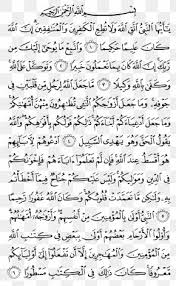 بِسْمِ اللَّهِ الرَّحْمَٰنِ الرَّحِيمِ
يَٰٓأَيُّهَا النَّبِيُّ اتَّقِ اللَّهَ وَلَا تُطِعِ الْكَٰفِرِينَ وَالْمُنَٰفِقِينَ إِنَّ اللَّهَ
كَانَ عَلِيمًا حَكِيمًا ١ وَاتَّبِعْ مَا يُوحَىٰٓ إِلَيْكَ مِن
رَّبِّكَ إِنَّ اللَّهَ كَانَ بِمَا تَعْمَلُونَ خَبِيرًا ٢ وَتَوَكَّلْ عَلَى اللَّهِ
وَكَفَىٰ بِاللَّهِ وَكِيلًا ٣ مَّا جَعَلَ اللَّهُ لِرَجُلٍ مِّن قَلْبَيْنِ فِي
جَوْفِهِۦ وَمَا جَعَلَ أَزْوَٰجَكُمُ الَّٰٓـِٔي تُظَٰهِرُونَ مِنْهُنَّ أُمَّهَٰتِكُمْ
وَمَا جَعَلَ أَدْعِيَآءَكُمْ أَبْنَآءَكُمْ ذَٰلِكُمْ قَوْلُكُم بِأَفْوَٰهِكُمْ وَاللَّهُ
يَقُولُ الْحَقَّ وَهُوَ يَهْدِي السَّبِيلَ ٤ ادْعُوهُمْ لِأٓبَآئِهِمْ
هُوَ أَقْسَطُ عِندَ اللَّهِ فَإِن لَّمْ تَعْلَمُوٓا۟ ءَابَآءَهُمْ فَإِخْوَٰنُكُمْ
فِي الدِّينِ وَمَوَٰلِيكُمْ وَلَيْسَ عَلَيْكُمْ جُنَاحٌ فِيمَآ أَخْطَأْتُم
بِهِۦ وَلَٰكِن مَّا تَعَمَّدَتْ قُلُوبُكُمْ وَكَانَ اللَّهُ غَفُورًا رَّحِيمًا
٥ النَّبِيُّ أَوْلَىٰ بِالْمُؤْمِنِينَ مِنْ أَنفُسِهِمْ وَأَزْوَٰجُهُۥٓ أُمَّهَٰتُهُمْ
وَأُو۟لُوا۟ الْأَرْحَامِ بَعْضُهُمْ أَوْلَىٰ بِبَعْضٍ فِي كِتَٰبِ اللَّهِ
مِنَ الْمُؤْمِنِينَ وَالْمُهَٰجِرِينَ إِلَّآ أَن تَفْعَلُوٓا۟ إِلَىٰٓ أَوْلِيَآئِكُم
مَّعْرُوفًا كَانَ ذَٰلِكَ فِي الْكِتَٰبِ مَسْطُورًا ٦